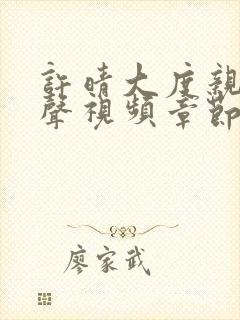 許晴大度親
聲視頻章節
廖家武